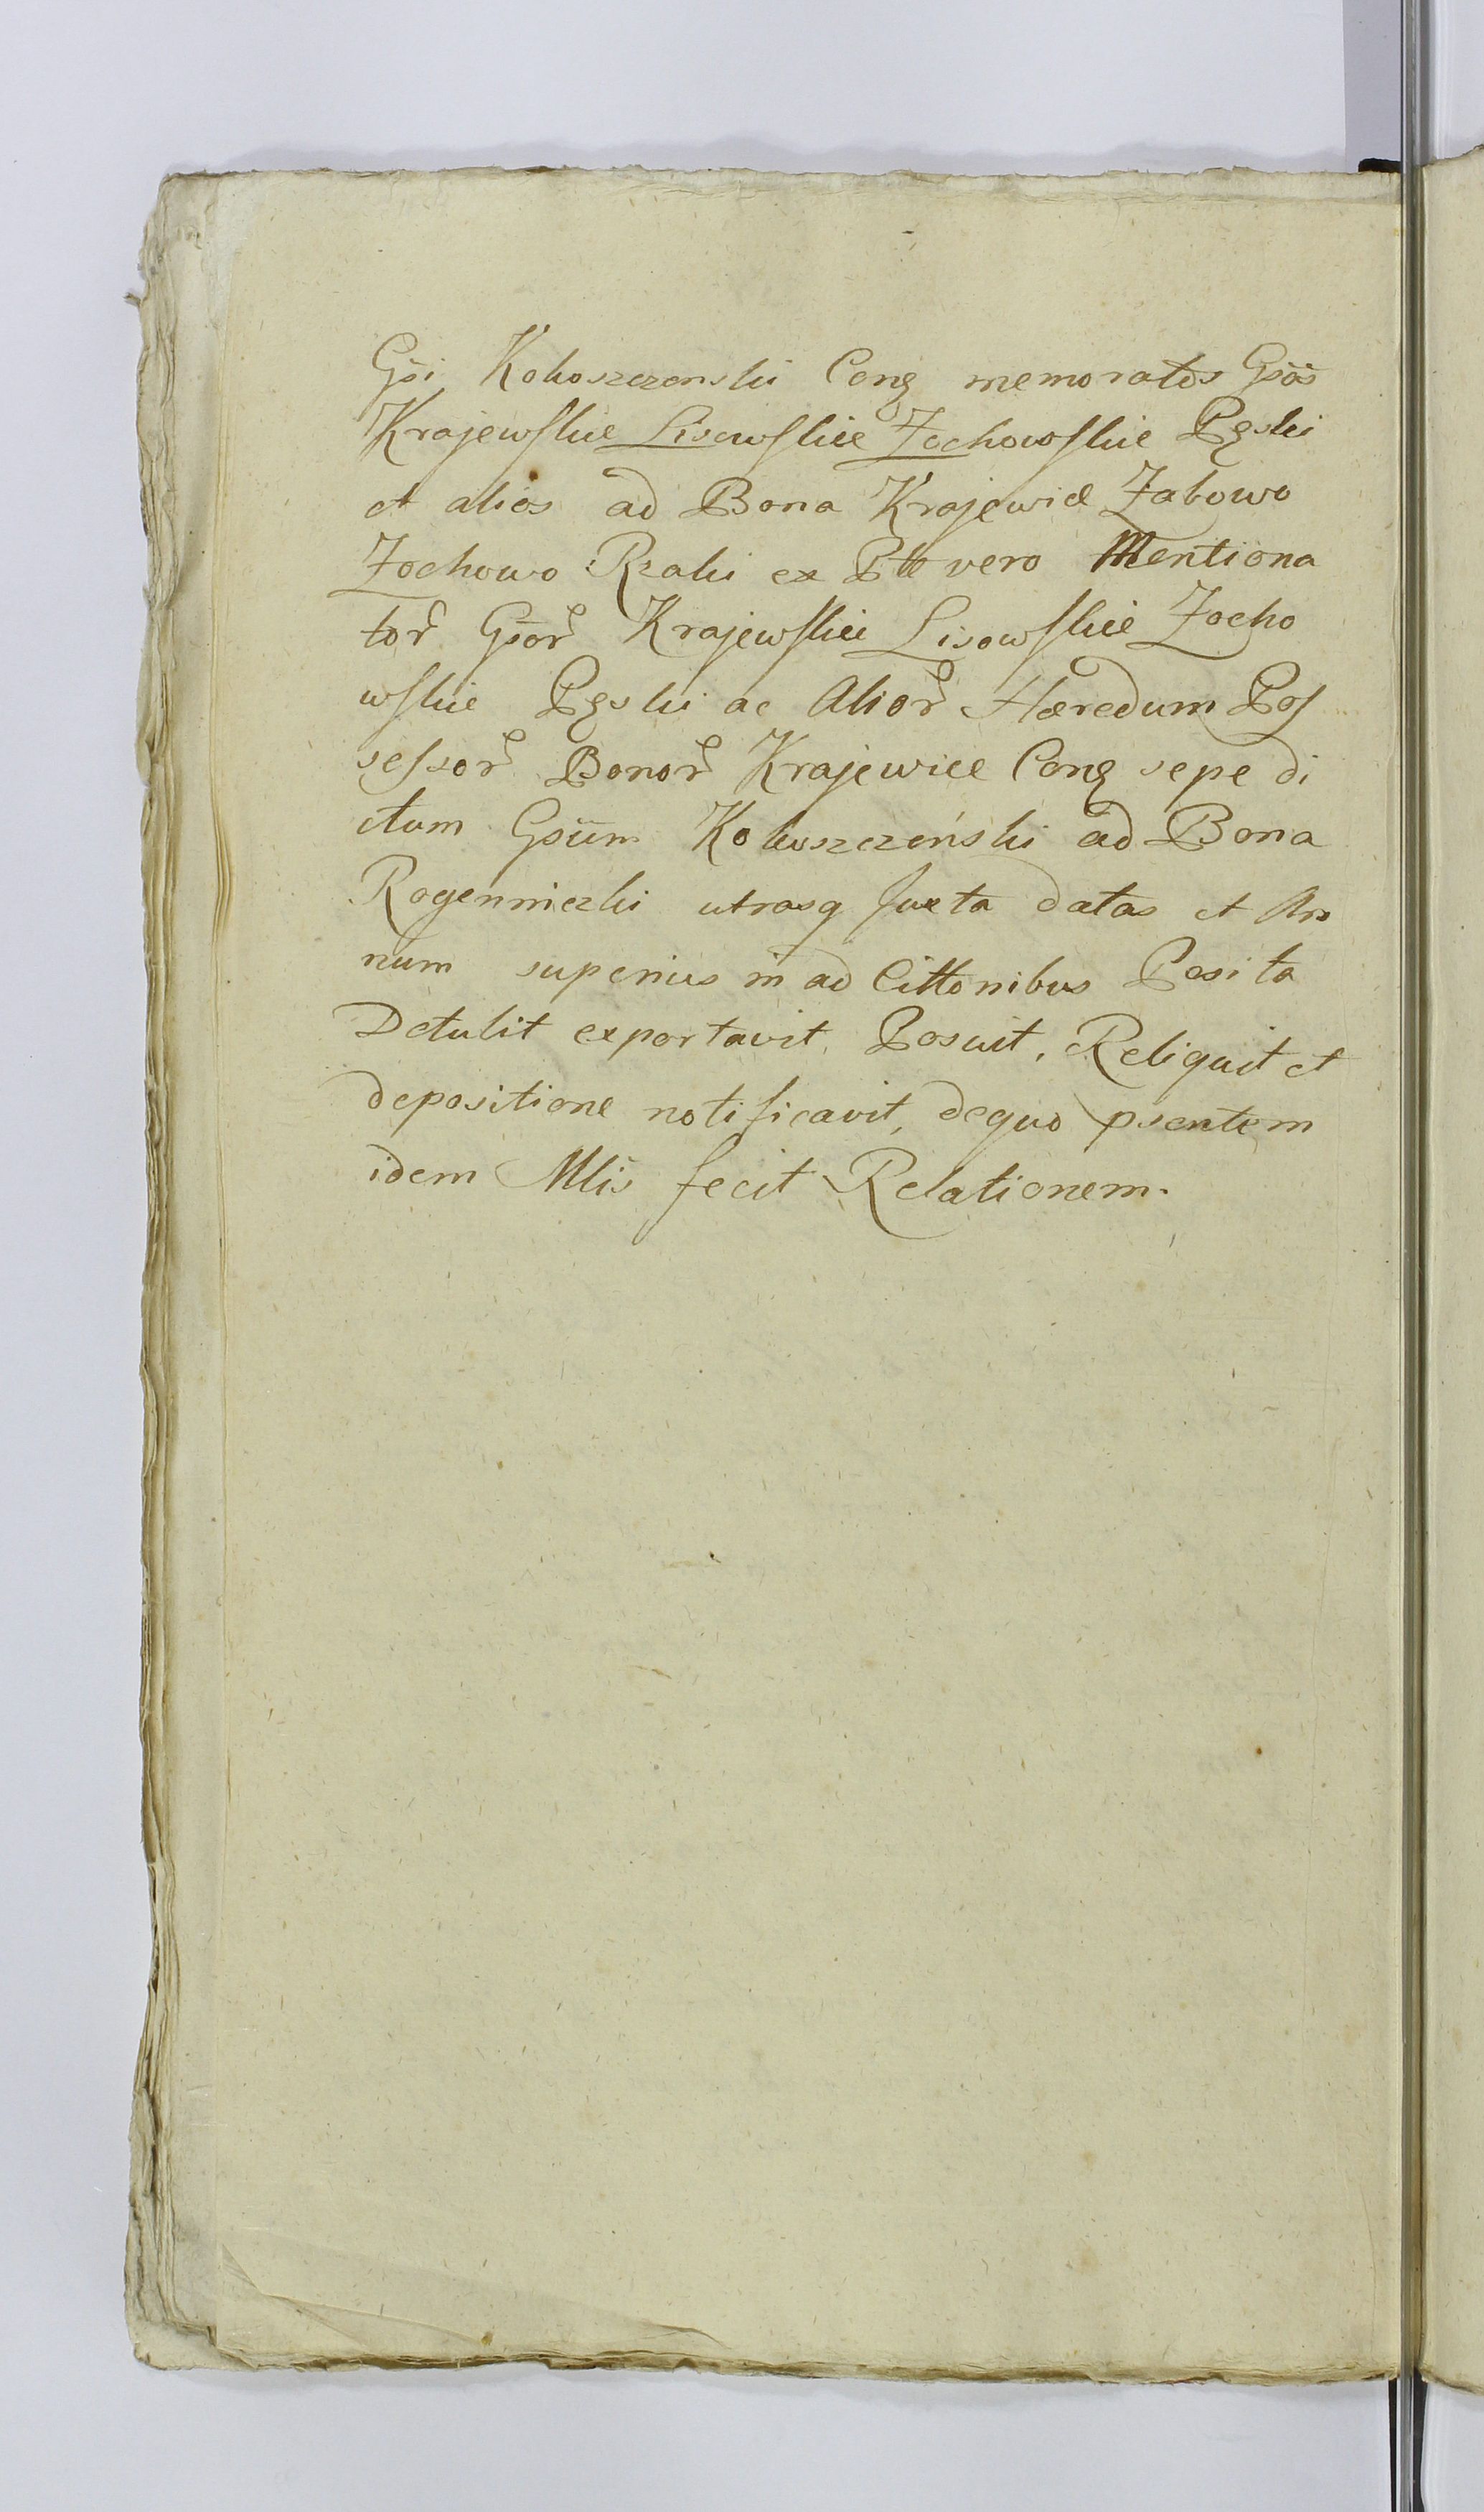 Gsi Kokoszczenski Cong memoratos Gsos
Krajewskie Lisowskie Zochowskie Pgski
et alios ad Bona Krajewice Zabowo
Zochowo Rzaki ex Pte vero Mentiona
tor Gsor Krajewskie Lisowskie Zocho
wskie Pgski ac Alior Hæredum Pos
sessor Bonor Krajewice Cong sepe di
ctum Gsum Kokoszczeński ad Bona
Rogenniczki utrasq Juxta datas et An
num superius in ad Cittonibus Posita
Detulit exportavit, Posuit, Reliquit et
depositione notificavit, dequo psentem
idem Mlis fecit Relationem.